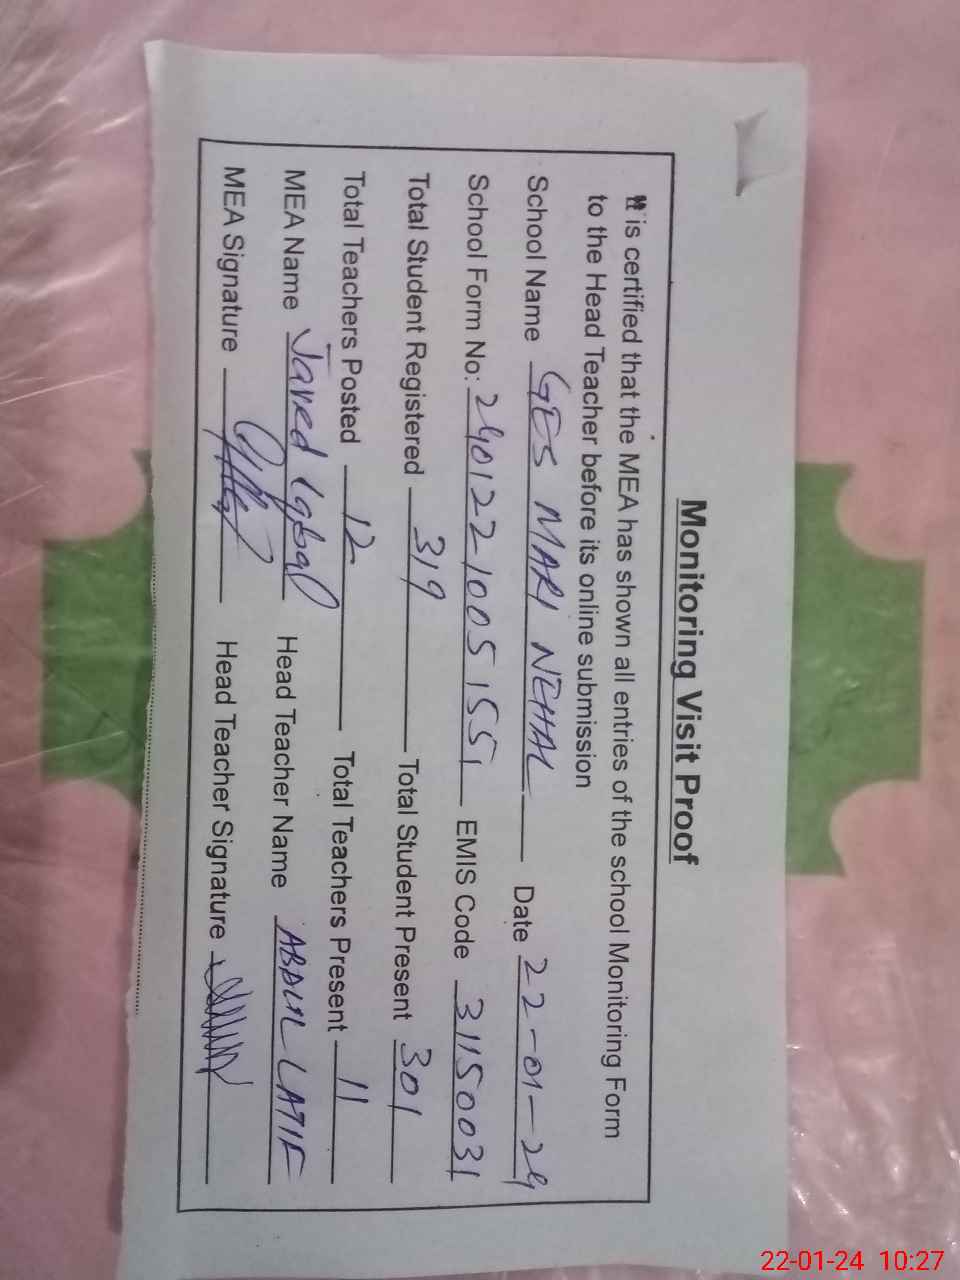 Monitoring Visit Proof
It is certified that the MEA has shown all entries of the school Monitoring Form
to the Head Teacher before its online submission
School Name GES MARI NEHAL Date 22-01-24
School Form No: 2401221005155 EMIS Code 31150031
Total Student Registered 319 Total Student Present 301
Total Teachers Posted 12 Total Teachers Present 11
MEA Name Javed Iqbal Head Teacher Name ABDUL LATIF
MEA Signature Head Teacher Signature
22-01-24 10:27